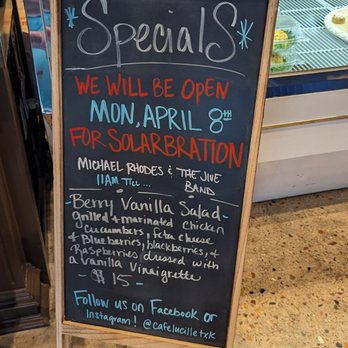 Specials
WE WILL BE OPEN
MON, APRIL 8th
FOR SOLARBRATION
MICHAEL RHODES & THE JIVE
11AM TILL... BAND
Berry Vanilla Salad
grilled + marinated chicken
cucumbers, feta cheese
+ Blueberries, blackberries, +
Raspberries dressed with
a Vanilla Vinaigrette
- $15 -
Follow us on Facebook or
Instagram! @cafelucilletxk